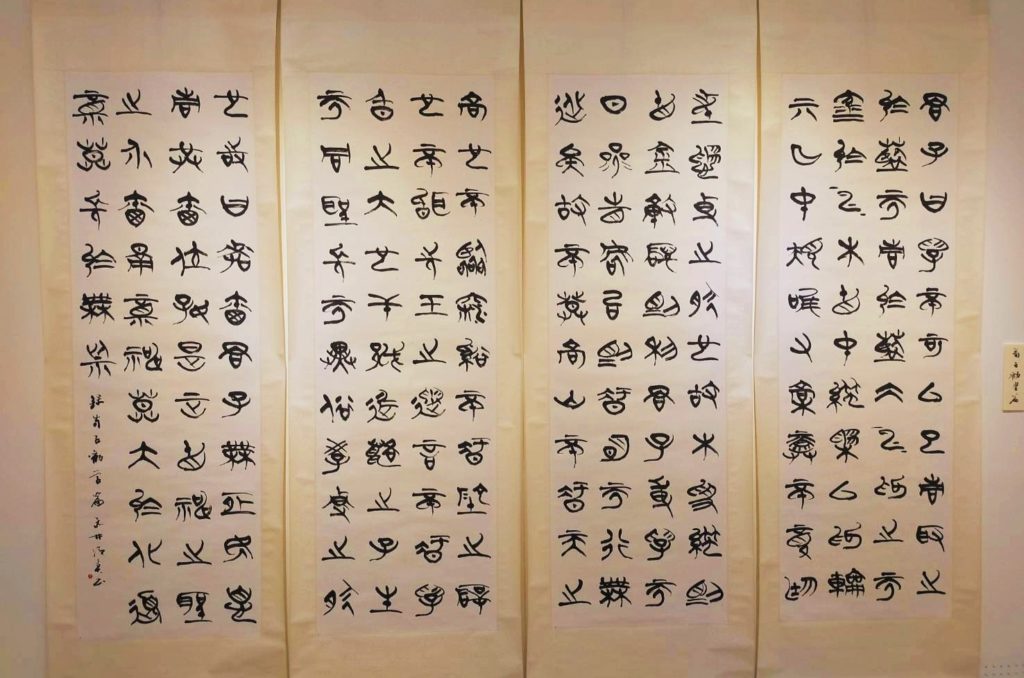 君子曰學不可以已青取之
於藍而青於藍冰水為之而
寒於水木直中繩輮以為輪
其曲中規雖有槁暴不復挺
者輮使之然也故木受繩則
直金就礪則利君子博學而
日參省乎己則知明而行無
過矣故不登高山不知天之
高也不臨深谿不知地之厚
也不聞先王之遺言不知學
問之大也干越夷貉之子生
而同聲長而異俗教使之然
也詩曰嗟爾君子無恆安息
靖共爾位好是正直神之聽
之介爾景福神莫大於化道
福莫長於無禍
錄荀子勸學篇
荀子勸學篇